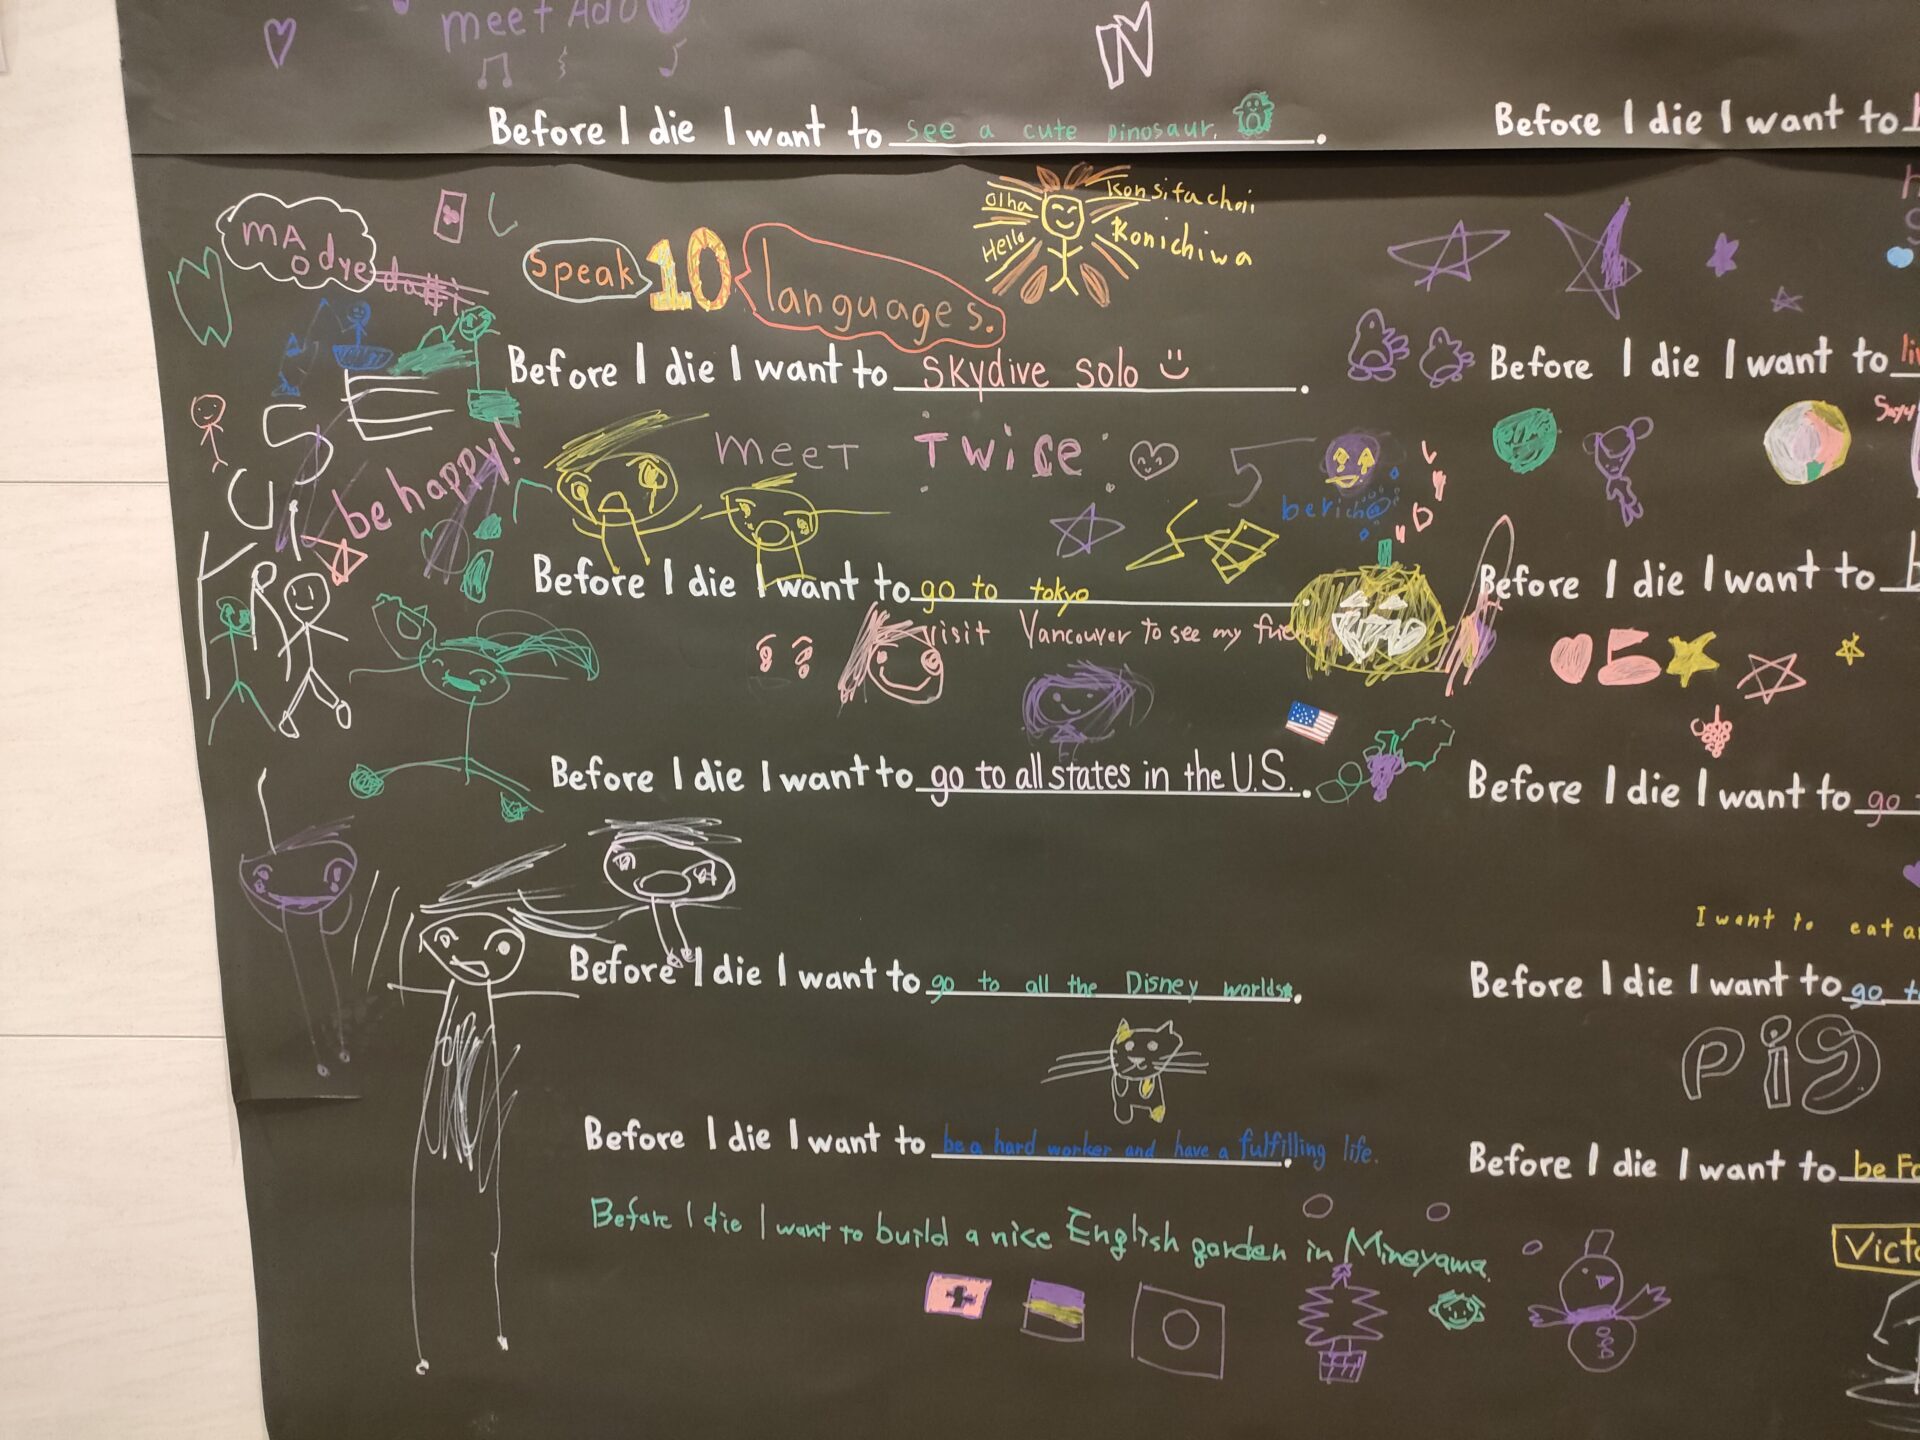 meet Ado
N
Before I die I want to see a cute Dinosaur.
Before I die I want to
Olha
Hello
Konichiwa
Speak 10 languages.
Before I die I want to skydive solo
Before I die I want to
be happy!
meet Twice
5
Before I die I want to go to tokyo
Before I die I want to
visit Vancouver to see my
Before I die I want to go to all states in the U.S.
Before I die I want to go
I want to eat
Before I die I want to go to all the Disney worlds.
Before I die I want to go to
Pig
Before I die I want to be a hard worker and have a fulfilling life.
Before I die I want to be
Before I die I want to build a nice English garden in Mineyama.